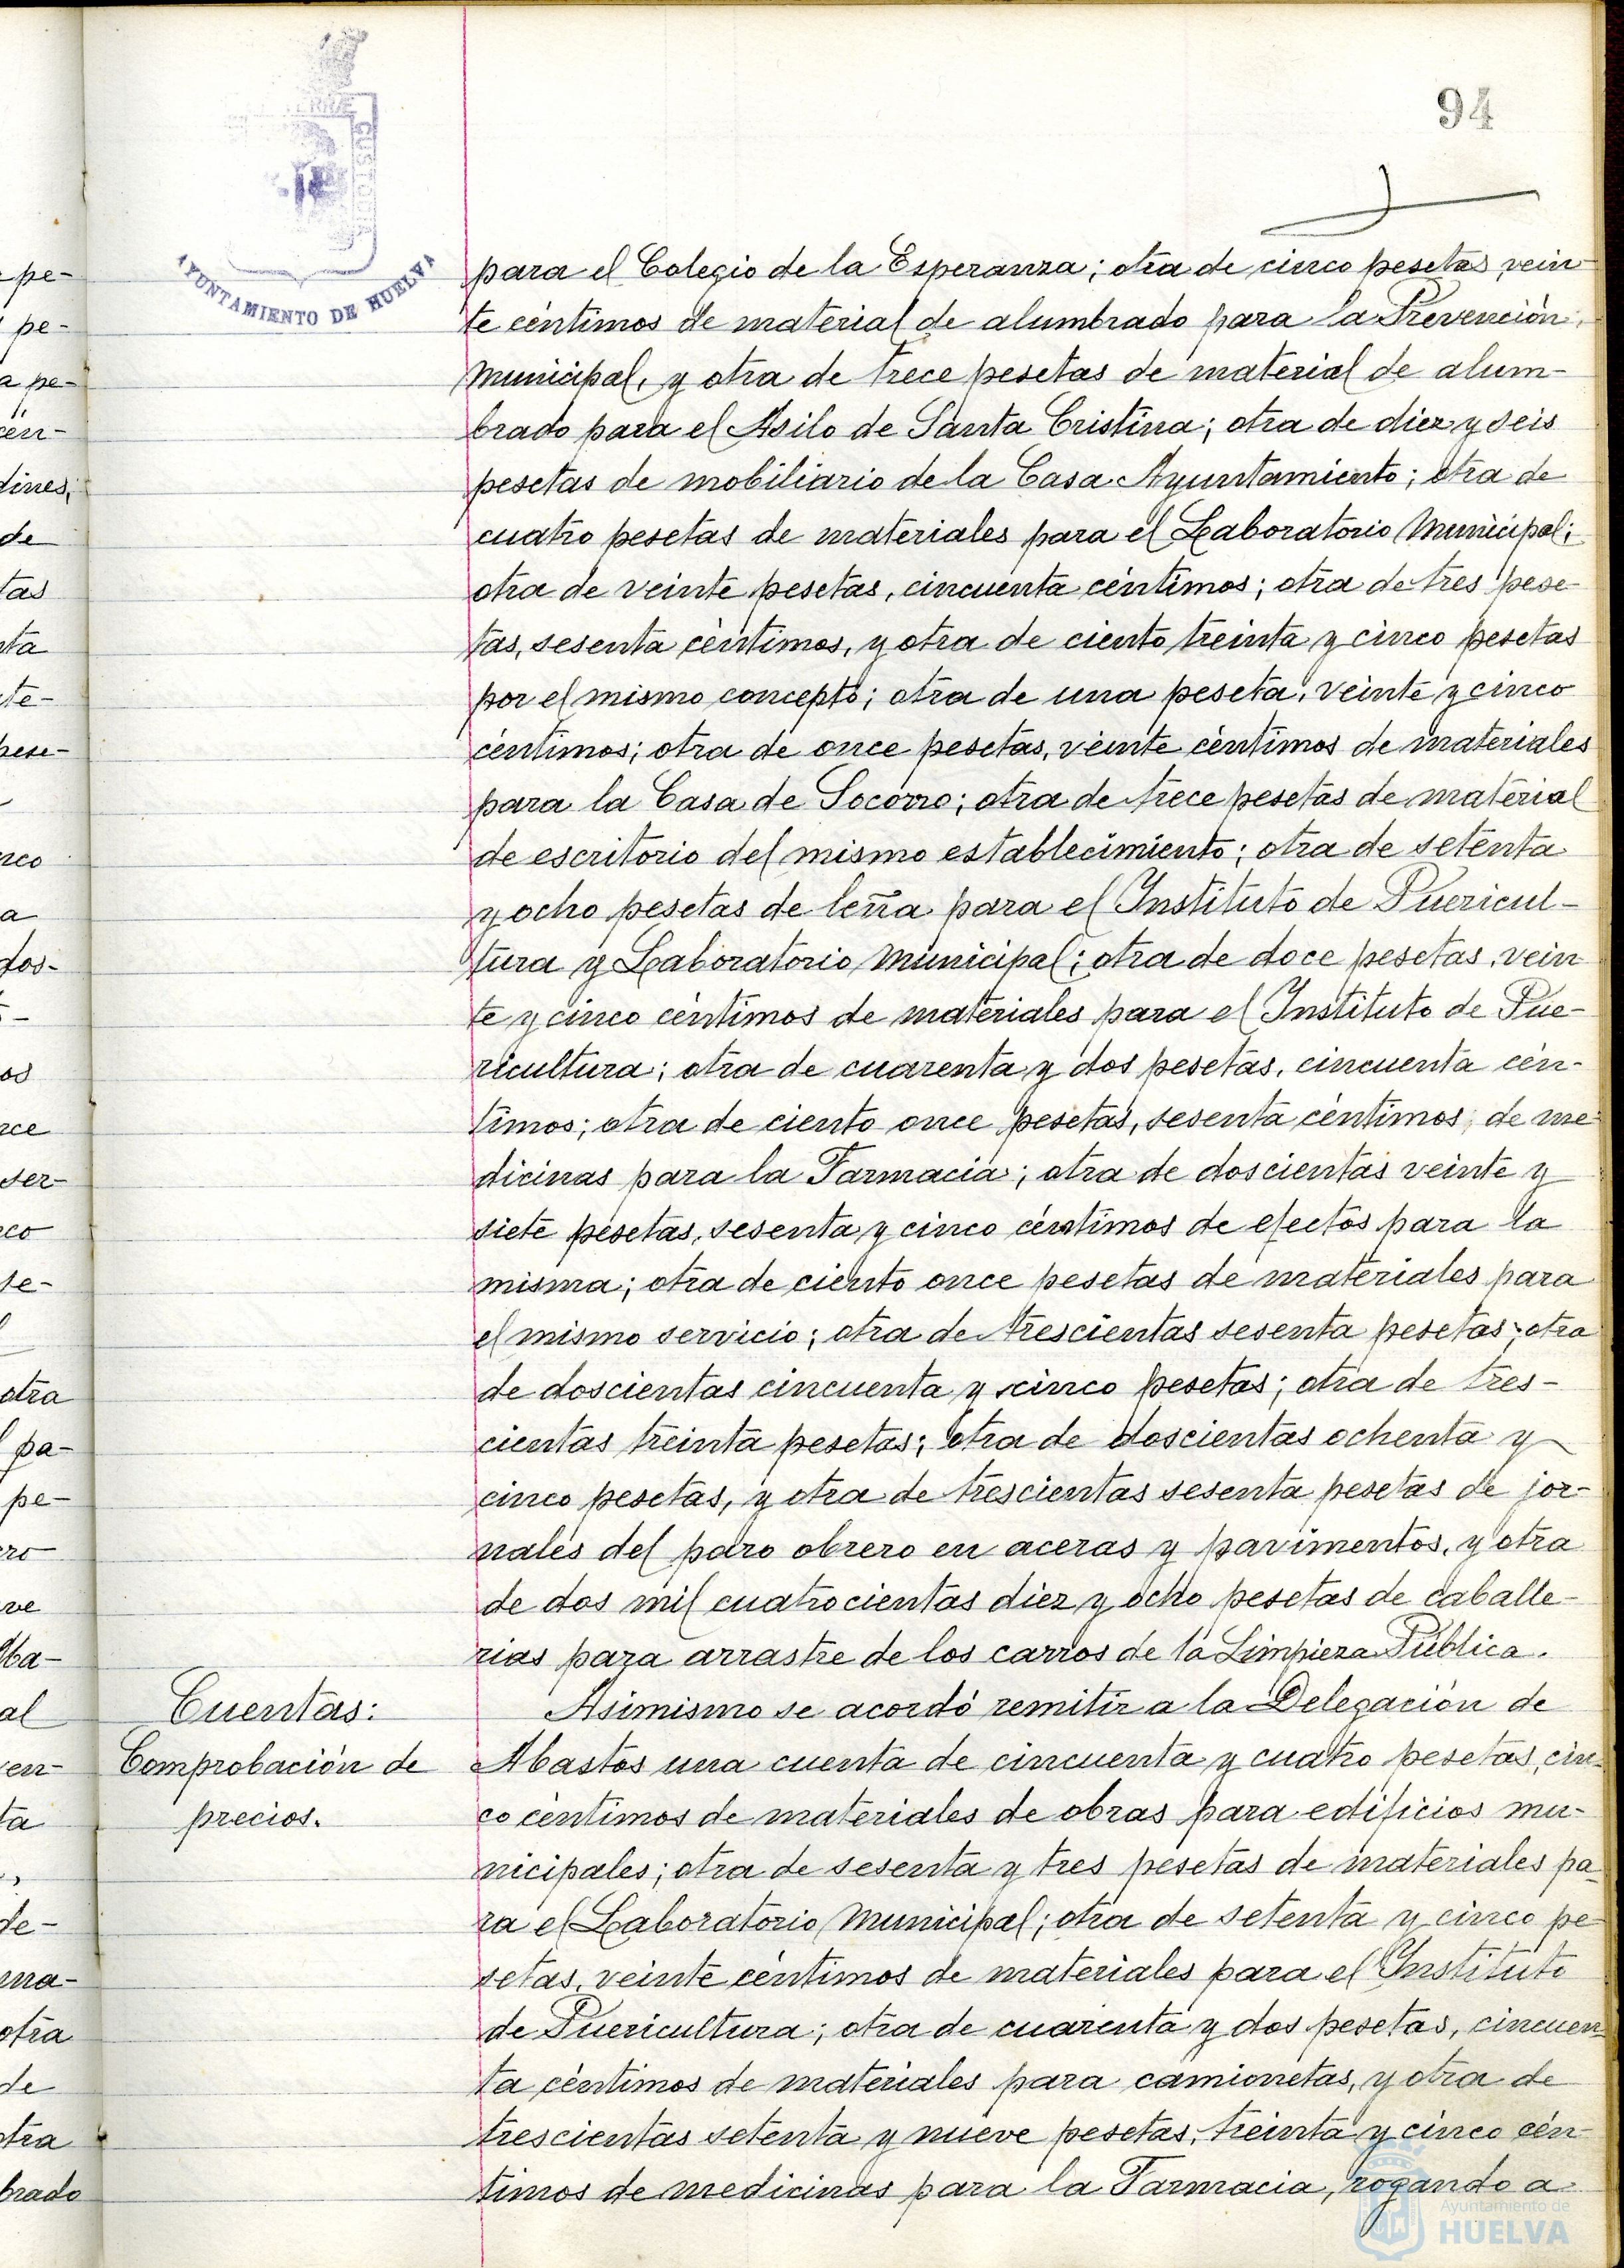 94
AYUNTAMIENTO DE HUELVA
para el Colegio de la Esperanza; otra de cinco pesetas, vein-
te céntimos de material de alumbrado para la Prevención
Municipal, y otra de trece pesetas de material de alum-
brado para el Asilo de Santa Cristina; otra de diez y seis
pesetas de mobiliario de la Casa Ayuntamiento; otra de
cuatro pesetas de materiales para el Laboratorio Municipal;
otra de veinte pesetas, cincuenta céntimos; otra de tres pese-
tas, sesenta céntimos, y otra de ciento treinta y cinco pesetas
por el mismo concepto; otra de una peseta, veinte y cinco
céntimos; otra de once pesetas, veinte céntimos de materiales
para la Casa de Socorro; otra de trece pesetas de material
de escritorio del mismo establecimiento; otra de setenta
y ocho pesetas de leña para el Instituto de Puericul-
tura y Laboratorio Municipal; otra de doce pesetas, vein
te y cinco céntimos de materiales para el Instituto de Pue-
ricultura; otra de cuarenta y dos pesetas, cincuenta cén-
timos; otra de ciento once pesetas, sesenta céntimos, de me-
dicinas para la Farmacia; otra de doscientas veinte y
siete pesetas, sesenta y cinco céntimos de efectos para la
misma; otra de ciento once pesetas de materiales para
el mismo servicio; otra de trescientas sesenta pesetas; otra
de doscientas cincuenta y cinco pesetas; otra de tres-
cientas treinta pesetas; otra de doscientas ochenta y
cinco pesetas, y otra de trescientas sesenta pesetas de jor-
nales del paro obrero en aceras y pavimentos, y otra
de dos mil cuatrocientas diez y ocho pesetas de caballe-
rias para arrastre de los carros de la Limpieza Pública.
Cuentas:
Comprobación de
precios.
Asimismo se acordó remitir a la Delegación de
Abastos una cuenta de cincuenta y cuatro pesetas, cin-
co céntimos de materiales de obras para edificios mu-
nicipales; otra de sesenta y tres pesetas de materiales pa-
ra el Laboratorio Municipal; otra de setenta y cinco pe-
setas, veinte céntimos de materiales para el Instituto
de Puericultura; otra de cuarenta y dos pesetas, cincuen
ta céntimos de materiales para camionetas, y otra de
trescientas setenta y nueve pesetas, treinta y cinco cén-
timos de medicinas para la Farmacia, rogando a
Ayuntamiento de
HUELVA